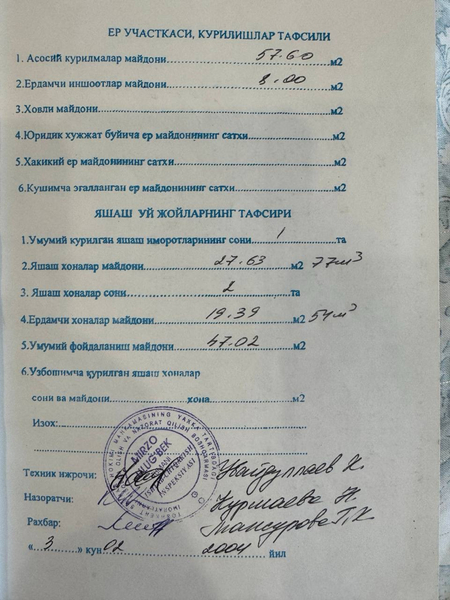 ЕР УЧАСТКАСИ, КУРИЛИШЛАР ТАФСИЛИ
1. Асосий курилмалар майдони 57.60 м2
2.Ердамчи иншоотлар майдони 8.00 м2
3.Ховли майдони м2
4.Юридик хужжат буйича ер майдонининг сатхи м2
5.Хакикий ер майдонининг сатхи м2
6.Кушимча эгалланган ер майдонининг сатхи м2
ЯШАШ УЙ ЖОЙЛАРНИНГ ТАФСИРИ
1.Умумий курилган яшаш имооротларининг сони 1 та
2.Яшаш хоналар майдони 27.63 м2 77м3
3. Яшаш хоналар сони 2 та
4.Ердамчи хоналар майдони 19.39 м2 54м3
5.Умумий фойдаланиш майдони 47.02 м2
6.Узбошимча қурилган яшаш хоналар
сони ва майдони хона м2
Изох:
MIRZO
ULUG'BEK
Техник ижрочи:
Назоратчи: Курмаева Н.
Рахбар: Мансурова
« 3 » кун 02 2004 йил